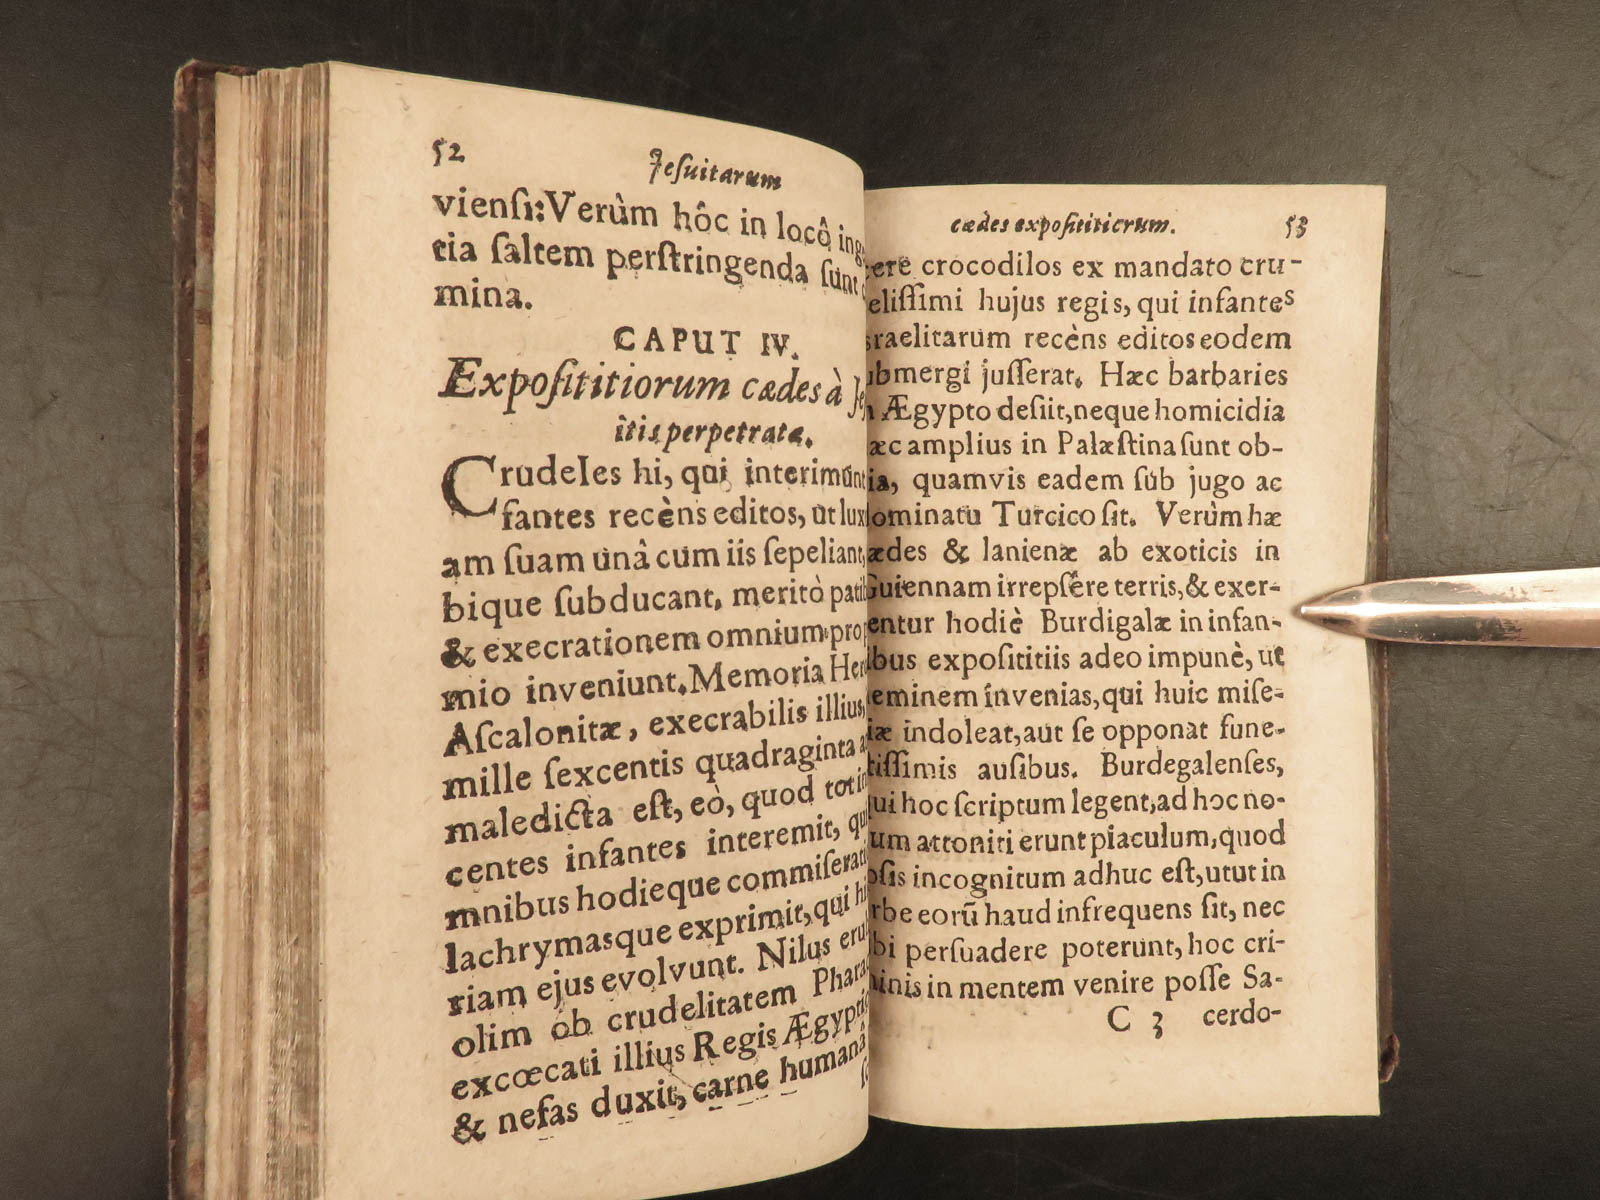 52
Jeſuitarum
vienſi: Verùm hôc in locô
tia ſaltem perſtringenda ſunt
mina.
CAPUT IV.
Expoſititiorum cædes à
itis perpetratæ.
Crudeles hi, qui interimunt
fantes recèns editos, ut
am ſuam unâ cum iis ſepeliant,
bique ſubducant, meritò
& execrationem omnium
mio inveniunt. Memoria
Aſcalonitæ, execrabilis illius,
mille ſexcentis quadraginta
maledicta eſt, eò, quod tot
centes infantes interemit,
mnibus hodieque
lachrymasque exprimit, qui
riam ejus evolvunt. Nilus
olim ob crudelitatem
excœcati illius Regis
& nefas duxit, carne humanâ
cædes expoſititiorum.
53
cere crocodilos ex mandato cru-
eliſſimi hujus regis, qui infantes
sraelitarum recèns editos eodem
ubmergi juſſerat. Hæc barbaries
Ægypto deſiit, neque homicidia
æc amplius in Palæſtina ſunt ob-
ia, quamvis eadem ſub jugo ac
dominatu Turcico ſit. Verùm hæ
ædes & lanienæ ab exoticis in
Guiennam irrepſêre terris, & exer-
entur hodiè Burdigalæ in infan-
ibus expoſititiis adeo impunè, ut
neminem invenias, qui huic miſe-
iæ indoleat, aut ſe opponat fune-
tiſſimis auſibus. Burdegalenſes,
qui hoc ſcriptum legent, ad hoc no-
um attoniti erunt piaculum, quod
pſis incognitum adhuc eſt, utut in
rbe eorũ haud infrequens ſit, nec
bi perſuadere poterunt, hoc cri-
minis in mentem venire poſſe Sa-
C 3 cerdo-